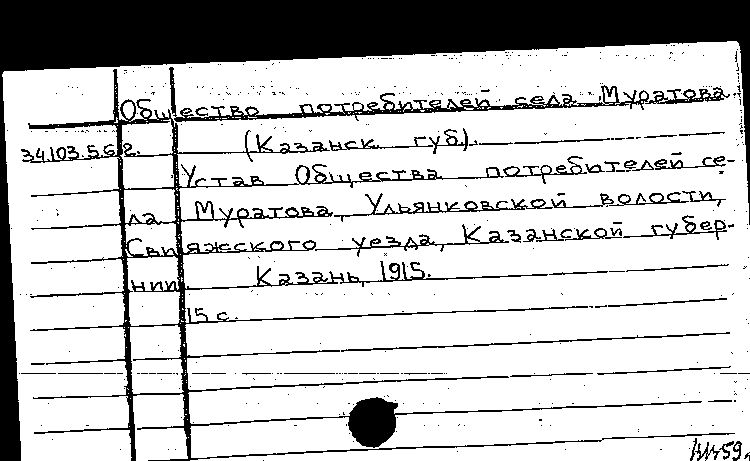 Общество потребителей села Муратова
34.103.5.6.2. (Казанск. губ.).
Устав Общества потребителей се-
ла Муратова, Ульянковской волости,
Свияжского уезда, Казанской губер-
нии. Казань, 1915.
15 с.